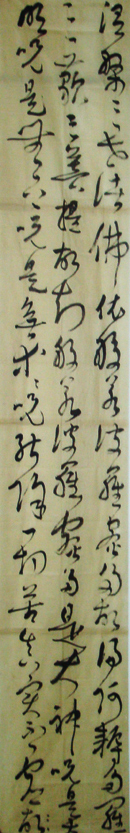 涅槃三世諸佛依般若波羅蜜多故得阿耨多羅
三三藐三菩提故知般若波羅蜜多是大神咒是大
明咒是無上咒是無等等咒能除一切苦真實不虛故